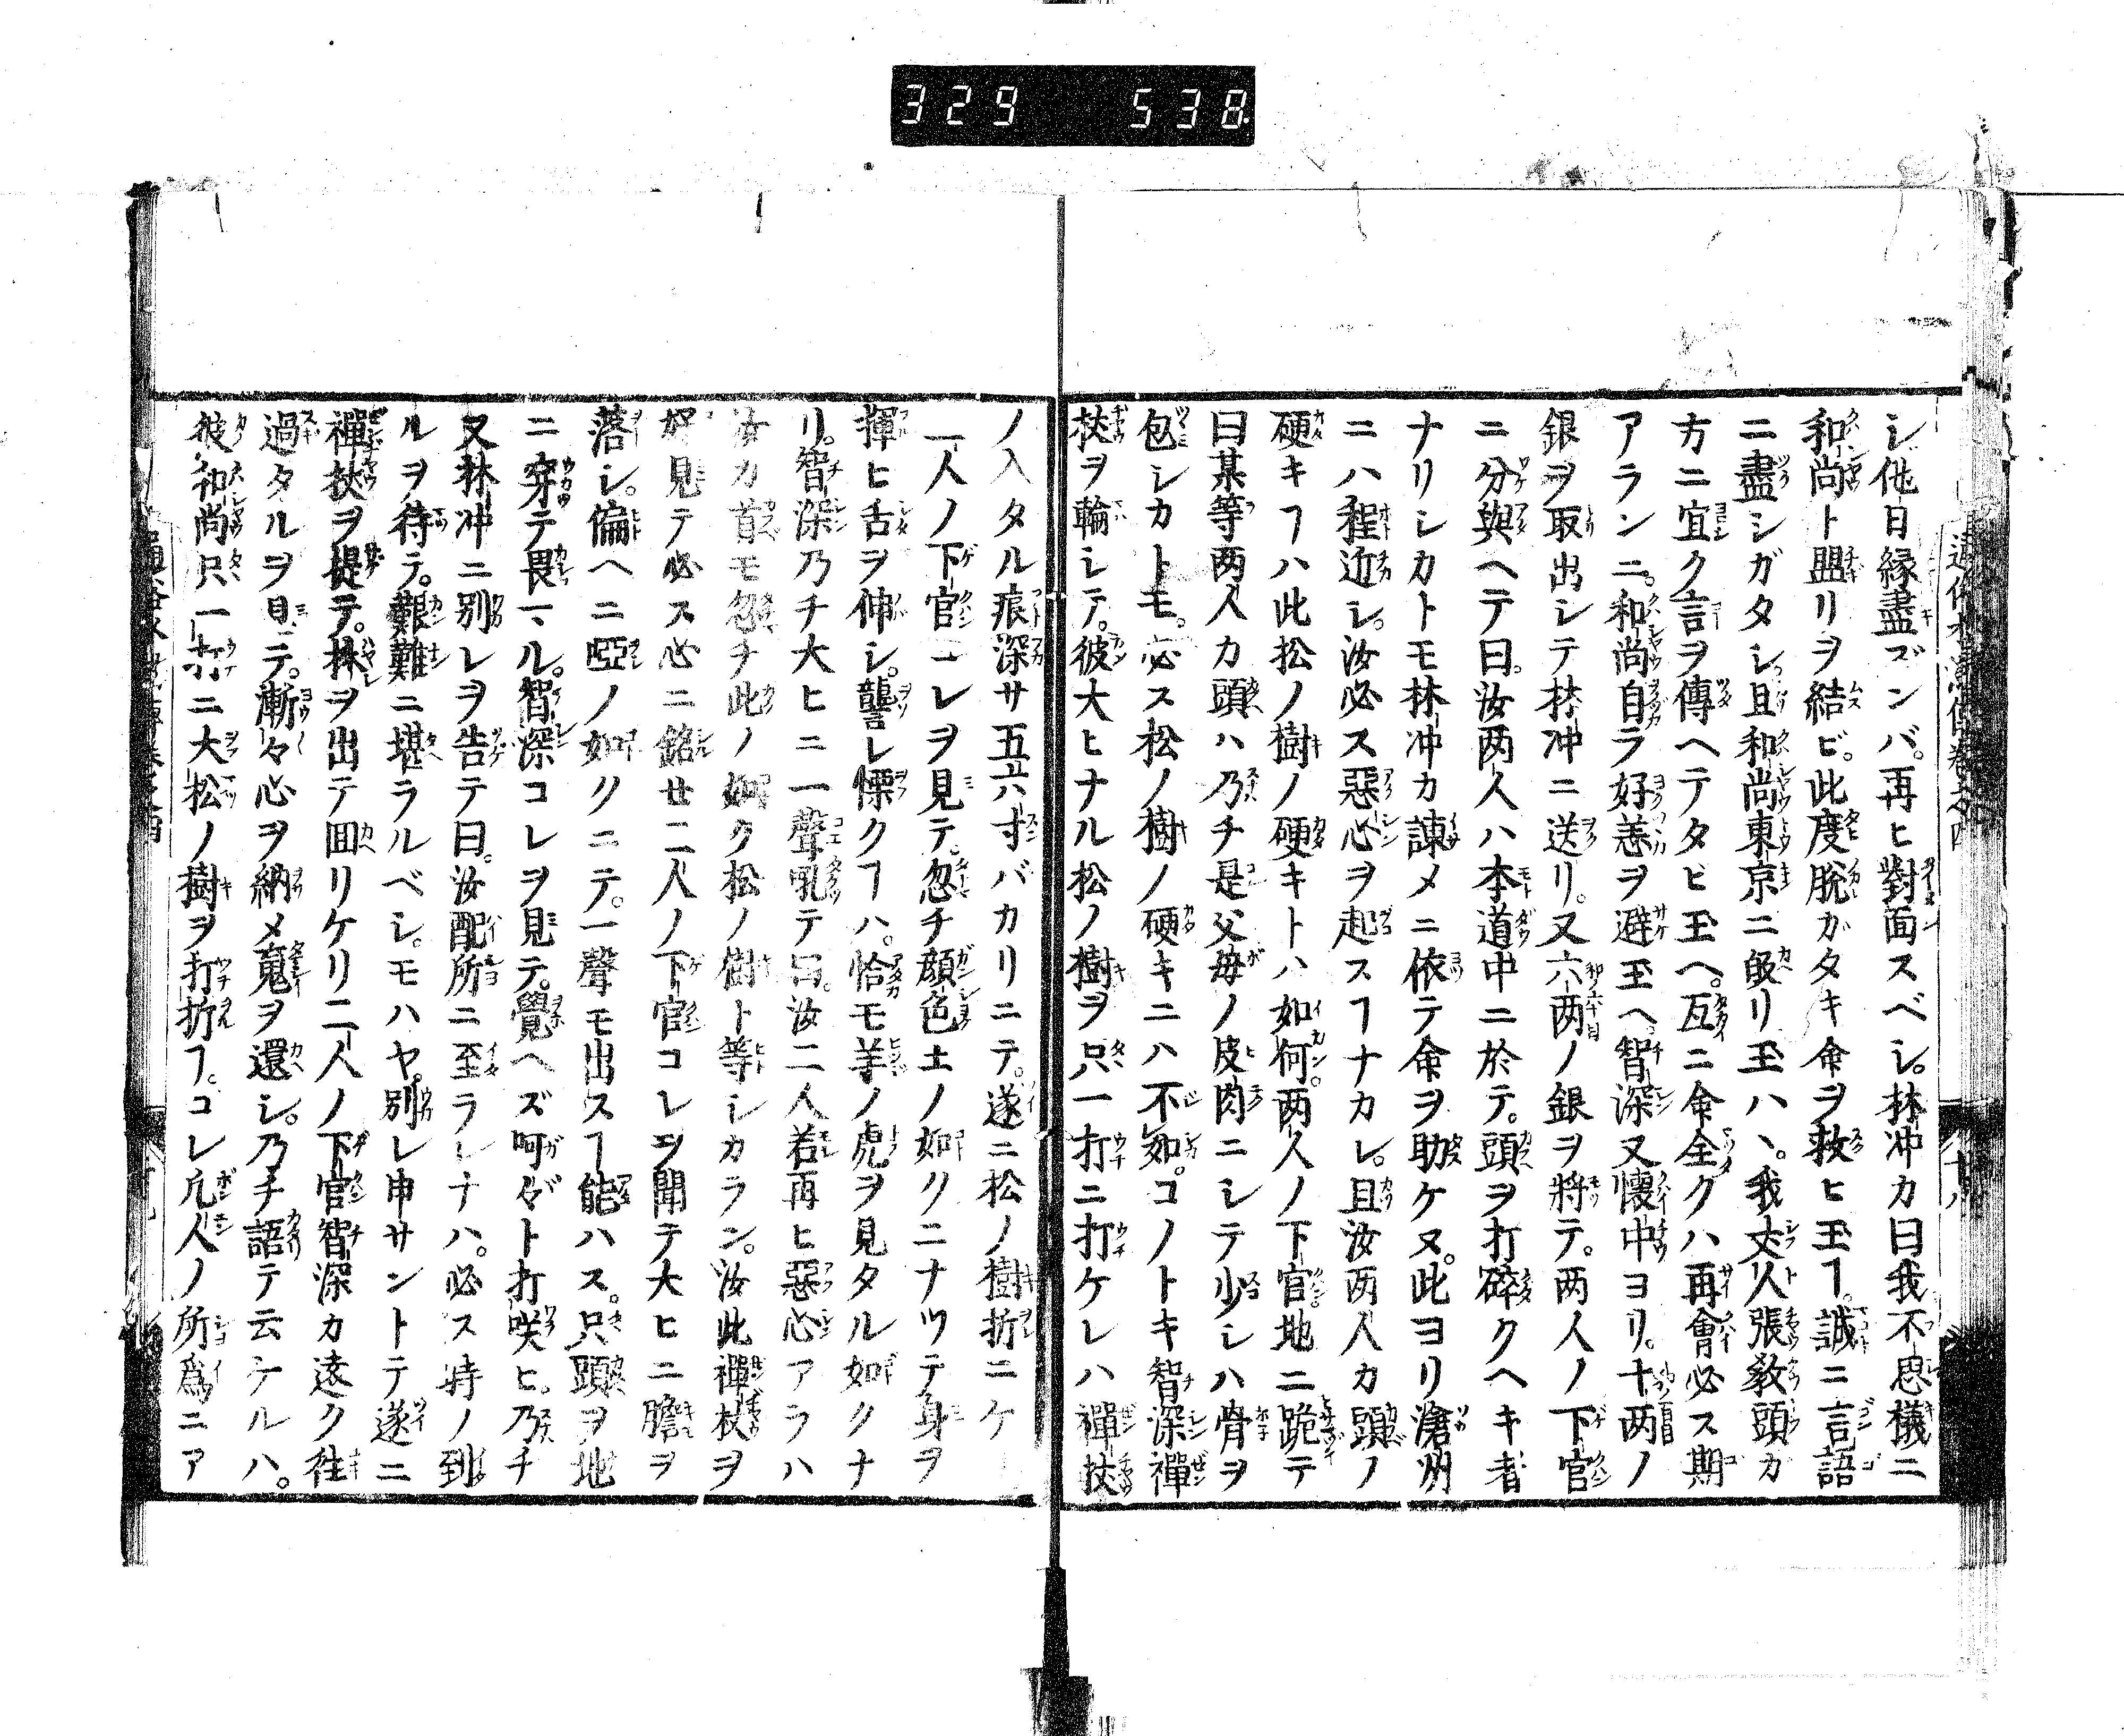 329 538
シ他日縁盡ズンバ。再ヒ對面スベシ。林冲カ曰我不思儀ニ
和尚ト盟リヲ結ビ。此度脱ガタキ命ヲ救ヒ玉フ。誠ニ言語
ニ盡シガタシ。且和尚東京ニ皈リ玉ハヽ。我丈人張敎頭カ
方ニ宜ク言ヲ傳ヘテタビ玉ヘ。互ニ命全クハ再會必ス期
アランニ。和尚自ラ好恙ヲ避玉ヘ。智深又懷中ヨリ。十两ノ
銀ヲ取出シテ林冲ニ送リ。又六两ノ銀ヲ將テ。两人ノ下官
ニ分與ヘテ曰。汝两人ハ本道中ニ於テ。頭ヲ打碎クヘキ者
ナリシカトモ林冲カ諫メニ依テ命ヲ助ケヌ。此ヨリ滄州
ニハ程近シ。汝必ス惡心ヲ起スヿナカレ。且汝两人カ頭ノ
硬キヿハ此松ノ樹ノ硬キトハ如何。两人ノ下官地ニ跪テ
曰某等两人カ頭ハ乃チ是父母ノ皮肉ニシテ少シハ骨ヲ
包シカトモ。必ス松ノ樹ノ硬キニハ不如。コノトキ智深禪
杖ヲ輪シテ。彼大ヒナル松ノ樹ヲ只一打ニ打ケレハ禪杖
ノ入タル痕深サ五六寸バカリニテ。遂ニ松ノ樹折ニケ
二人ノ下官コレヲ見テ。忽チ顔色土ノ如クニナツテ身ヲ
揮ヒ舌ヲ伸シ。讋レ慄クヿハ。恰モ羊ノ虎ヲ見タル如クナ
リ。智深乃チ大ヒニ一聲吼テ曰。汝二人若再ヒ惡心アラハ
汝カ首モ忽チ此ノ如ク松ノ樹ト等シカラン。汝此禪杖ヲ
好見テ必ス心ニ銘セ二人ノ下官コレヲ聞テ大ヒニ膽ヲ
落シ。偏ヘニ啞ノ如クニテ。一聲モ出スヿ能ハス。只頭ヲ地
ニ穿テ畏マル。智深コレヲ見テ。覺ヘズ呵々ト打咲ヒ。乃チ
又林冲ニ別レヲ告テ曰。汝配所ニ至ラレナハ。必ス時ノ到
ルヲ待テ。艱難ニ堪ラルベシ。モハヤ。別レ申サントテ遂ニ
禪杖ヲ提テ。林ヲ出テ囬リケリ二人ノ下官智深カ遠ク徃
過タルヲ見テ。漸々心ヲ納メ䰟ヲ還シ。乃チ語テ云ケルハ。
彼和尚只一打ニ大松ノ樹ヲ打折ヿ。コレ凢人ノ所爲ニア